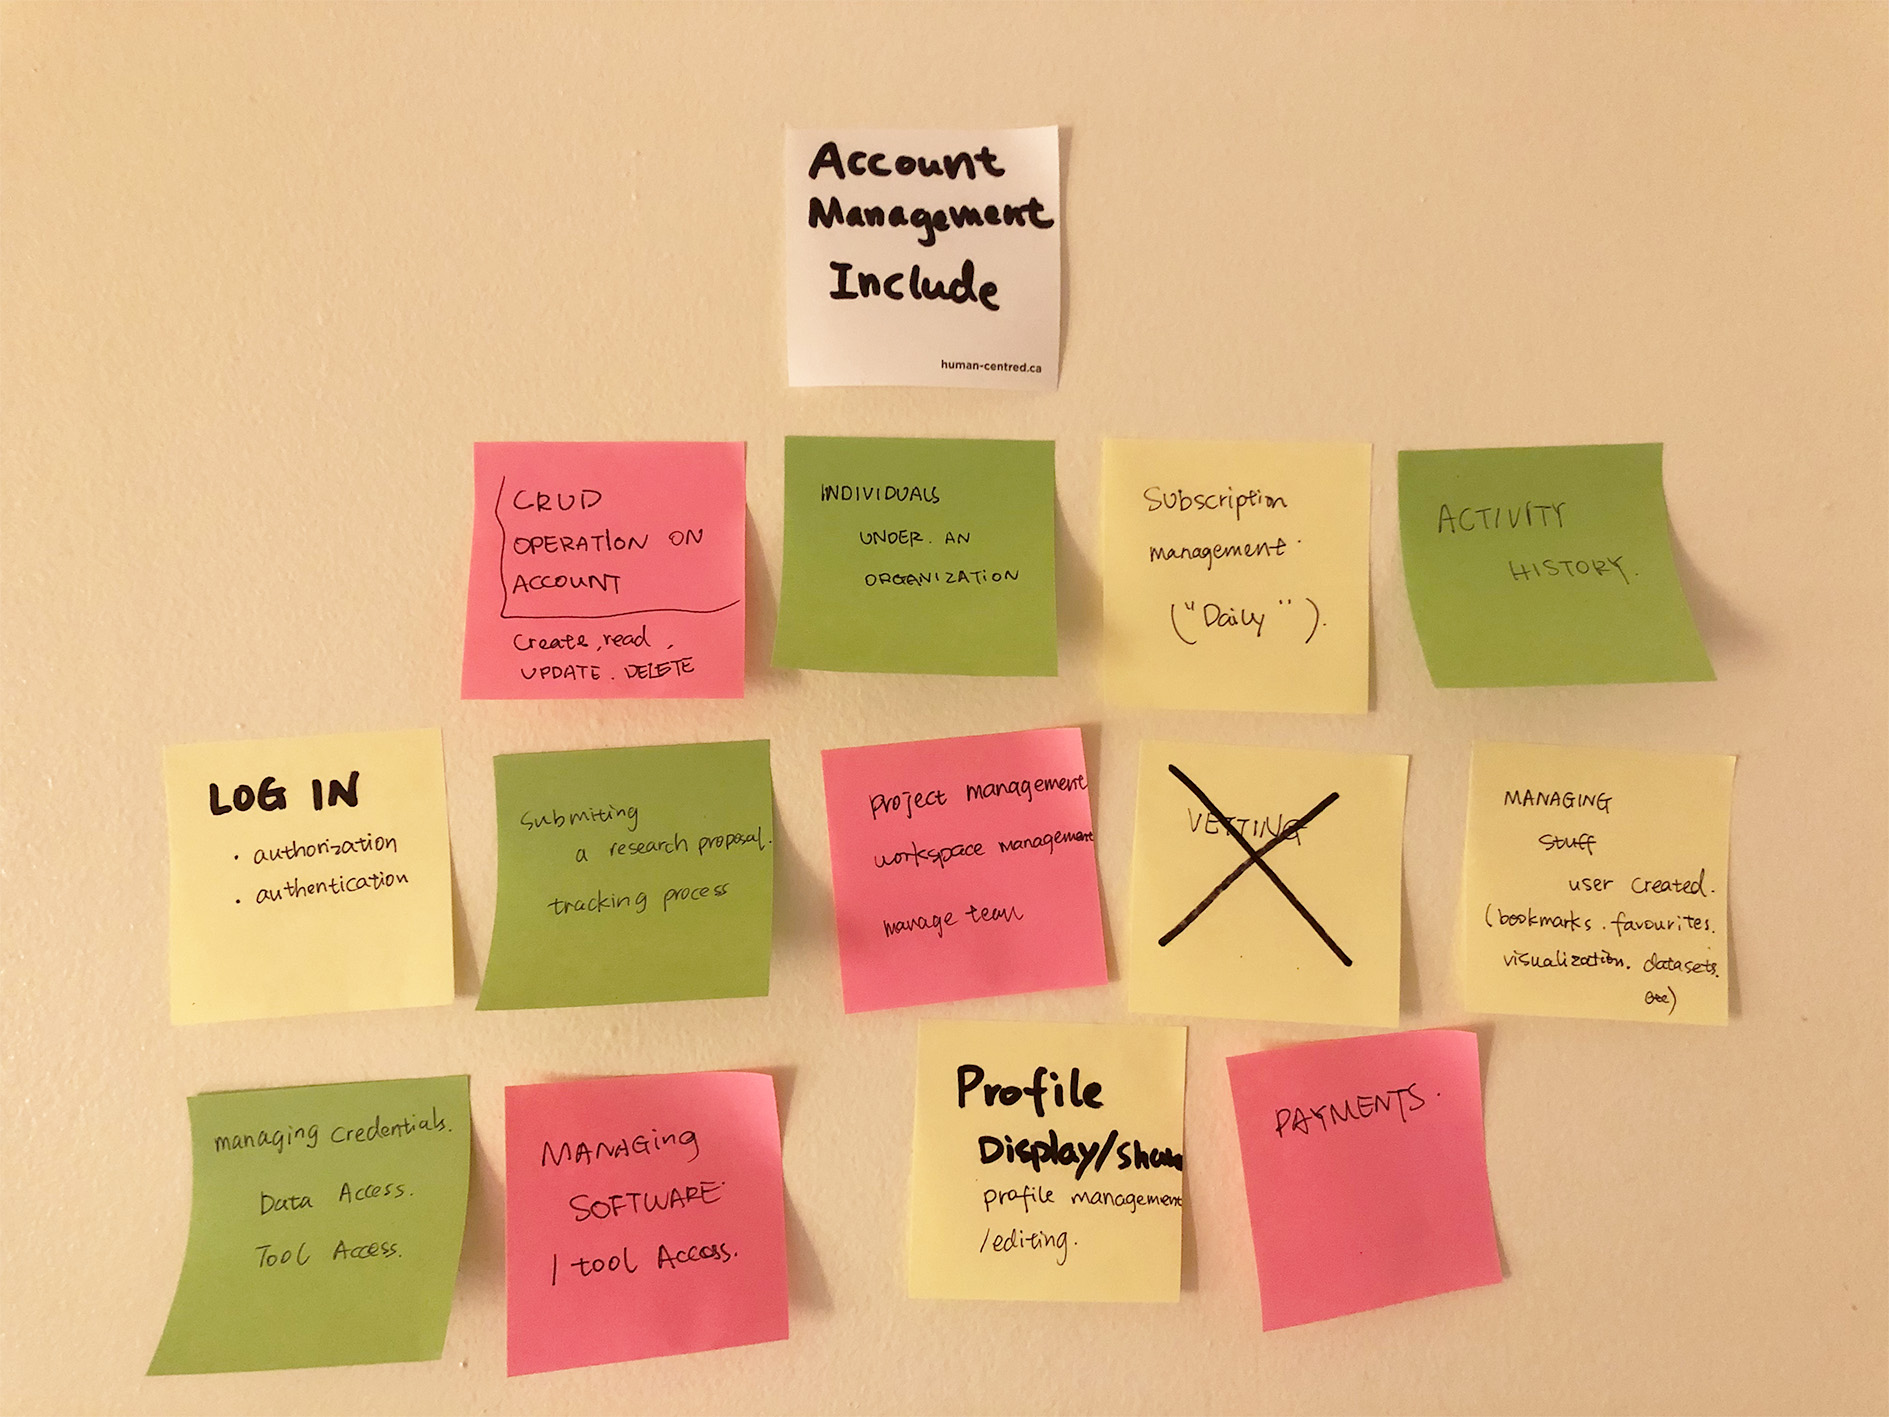 Account
Management
Include
human-centred.ca
CRUD
OPERATION ON
ACCOUNT
Create, read,
UPDATE. DELETE
INDIVIDUALS
UNDER. AN
ORGANIZATION
Subscription
management.
("Daily").
ACTIVITY
HISTORY.
LOG IN
• authorization
• authentication
Submiting
a research proposal.
tracking process
project management
workspace management
manage team
VETTING
MANAGING
stuff
user created.
(bookmarks. favourites.
visualization. datasets.
etc)
managing credentials.
Data Access.
Tool Access.
MANAGing
SOFTWARE
/ tool Access.
Profile
Display/Share
profile management
/editing.
PAYMENTS.